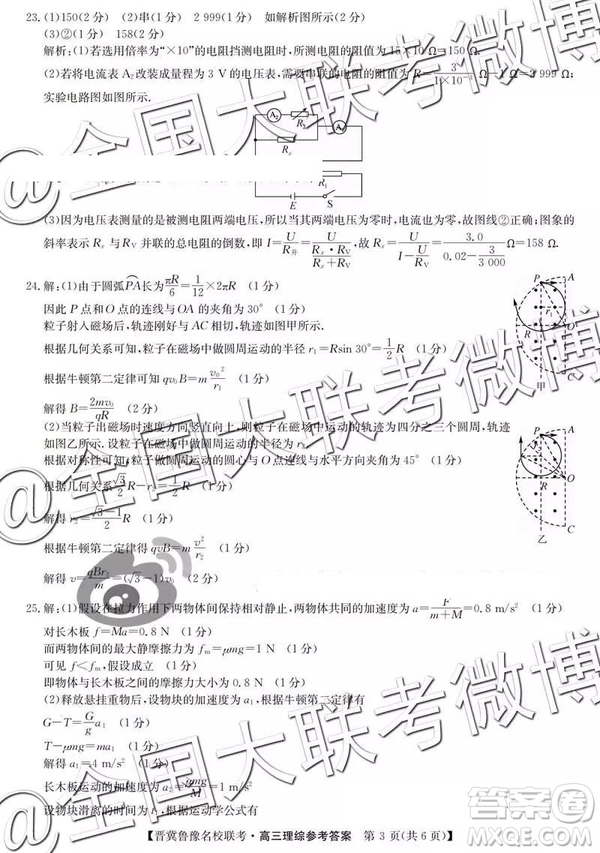 23.(1)150(2分) (2)串(1分) 2 999(1分) 如解析图所示(2分)
(3)②(1分) 158(2分)
解析:(1)若选用倍率为“×10”的电阻挡测电阻时,则所测电阻的阻值为15×10 Ω=150 Ω.
(2)若将电流表A₂改装成量程为3 V的电压表,需要串联的电阻的阻值为R=3/(1×10⁻³) Ω-1 Ω=2 999 Ω;
实验电路图如图所示.
A₂ R₃ A₁
Rₓ
R₁
E S
(3)因为电压表测量的是被测电阻两端电压,所以当其两端电压为零时,电流也为零,故图线②正确;图象的
斜率表示Rₓ与R_V并联的总电阻的倒数,即I=U/R并=U/(Rₓ·R_V/(Rₓ+R_V)),故Rₓ=U/(I-U/R_V)=3.0/(0.02-3/3 000) Ω=158 Ω.
24.解:(1)由于圆弧PA长为πR/6=1/12×2πR (1分)
因此P点和O点的连线与OA的夹角为30° (1分)
粒子射入磁场后,轨迹刚好与AC相切,轨迹如图甲所示.
根据几何关系可知,粒子在磁场中做圆周运动的半径r₁=Rsin 30°=1/2R (1分)
根据牛顿第二定律可知qv₀B=m v₀²/r₁ (1分)
解得B=2mv₀/qR (2分)
(2)当粒子出磁场时速度方向竖直向上,则粒子在磁场中做圆周运动的轨迹为四分之三个圆周,轨迹
如图乙所示.设粒子在磁场中做圆周运动的半径为r₂
根据对称性可知:粒子做圆周运动的圆心与O点连线与水平方向夹角为45° (1分)
P A
r₁
R O
C
甲
P A
R O
C
乙
解得v=qBr₂/m=(√3-1)v₀ (1分)
根据牛顿第二定律得qvB=m v²/r₂ (1分)
25.解:(1)假设在拉力作用下两物体间保持相对静止,两物体共同的加速度为a=F/(m+M)=0.8 m/s² (1分)
对长木板f=Ma=0.8 N (1分)
而两物体间的最大静摩擦力为fₘ=μmg=1 N (1分)
可见f<fₘ,假设成立 (1分)
即物块与长木板之间的摩擦力大小为0.8 N (1分)
(2)释放悬挂重物后,设物块的加速度为a₁,根据牛顿第二定律有
G-T=G/g a₁ (1分)
T-μmg=ma₁ (1分)
解得a₁=4 m/s² (1分)
设物块滑离时,根据运动学公式有
【晋冀鲁豫名校联考·高三理综参考答案 第3页(共6页)】
@全国大联考微博
@全国大联考微博
答案圈